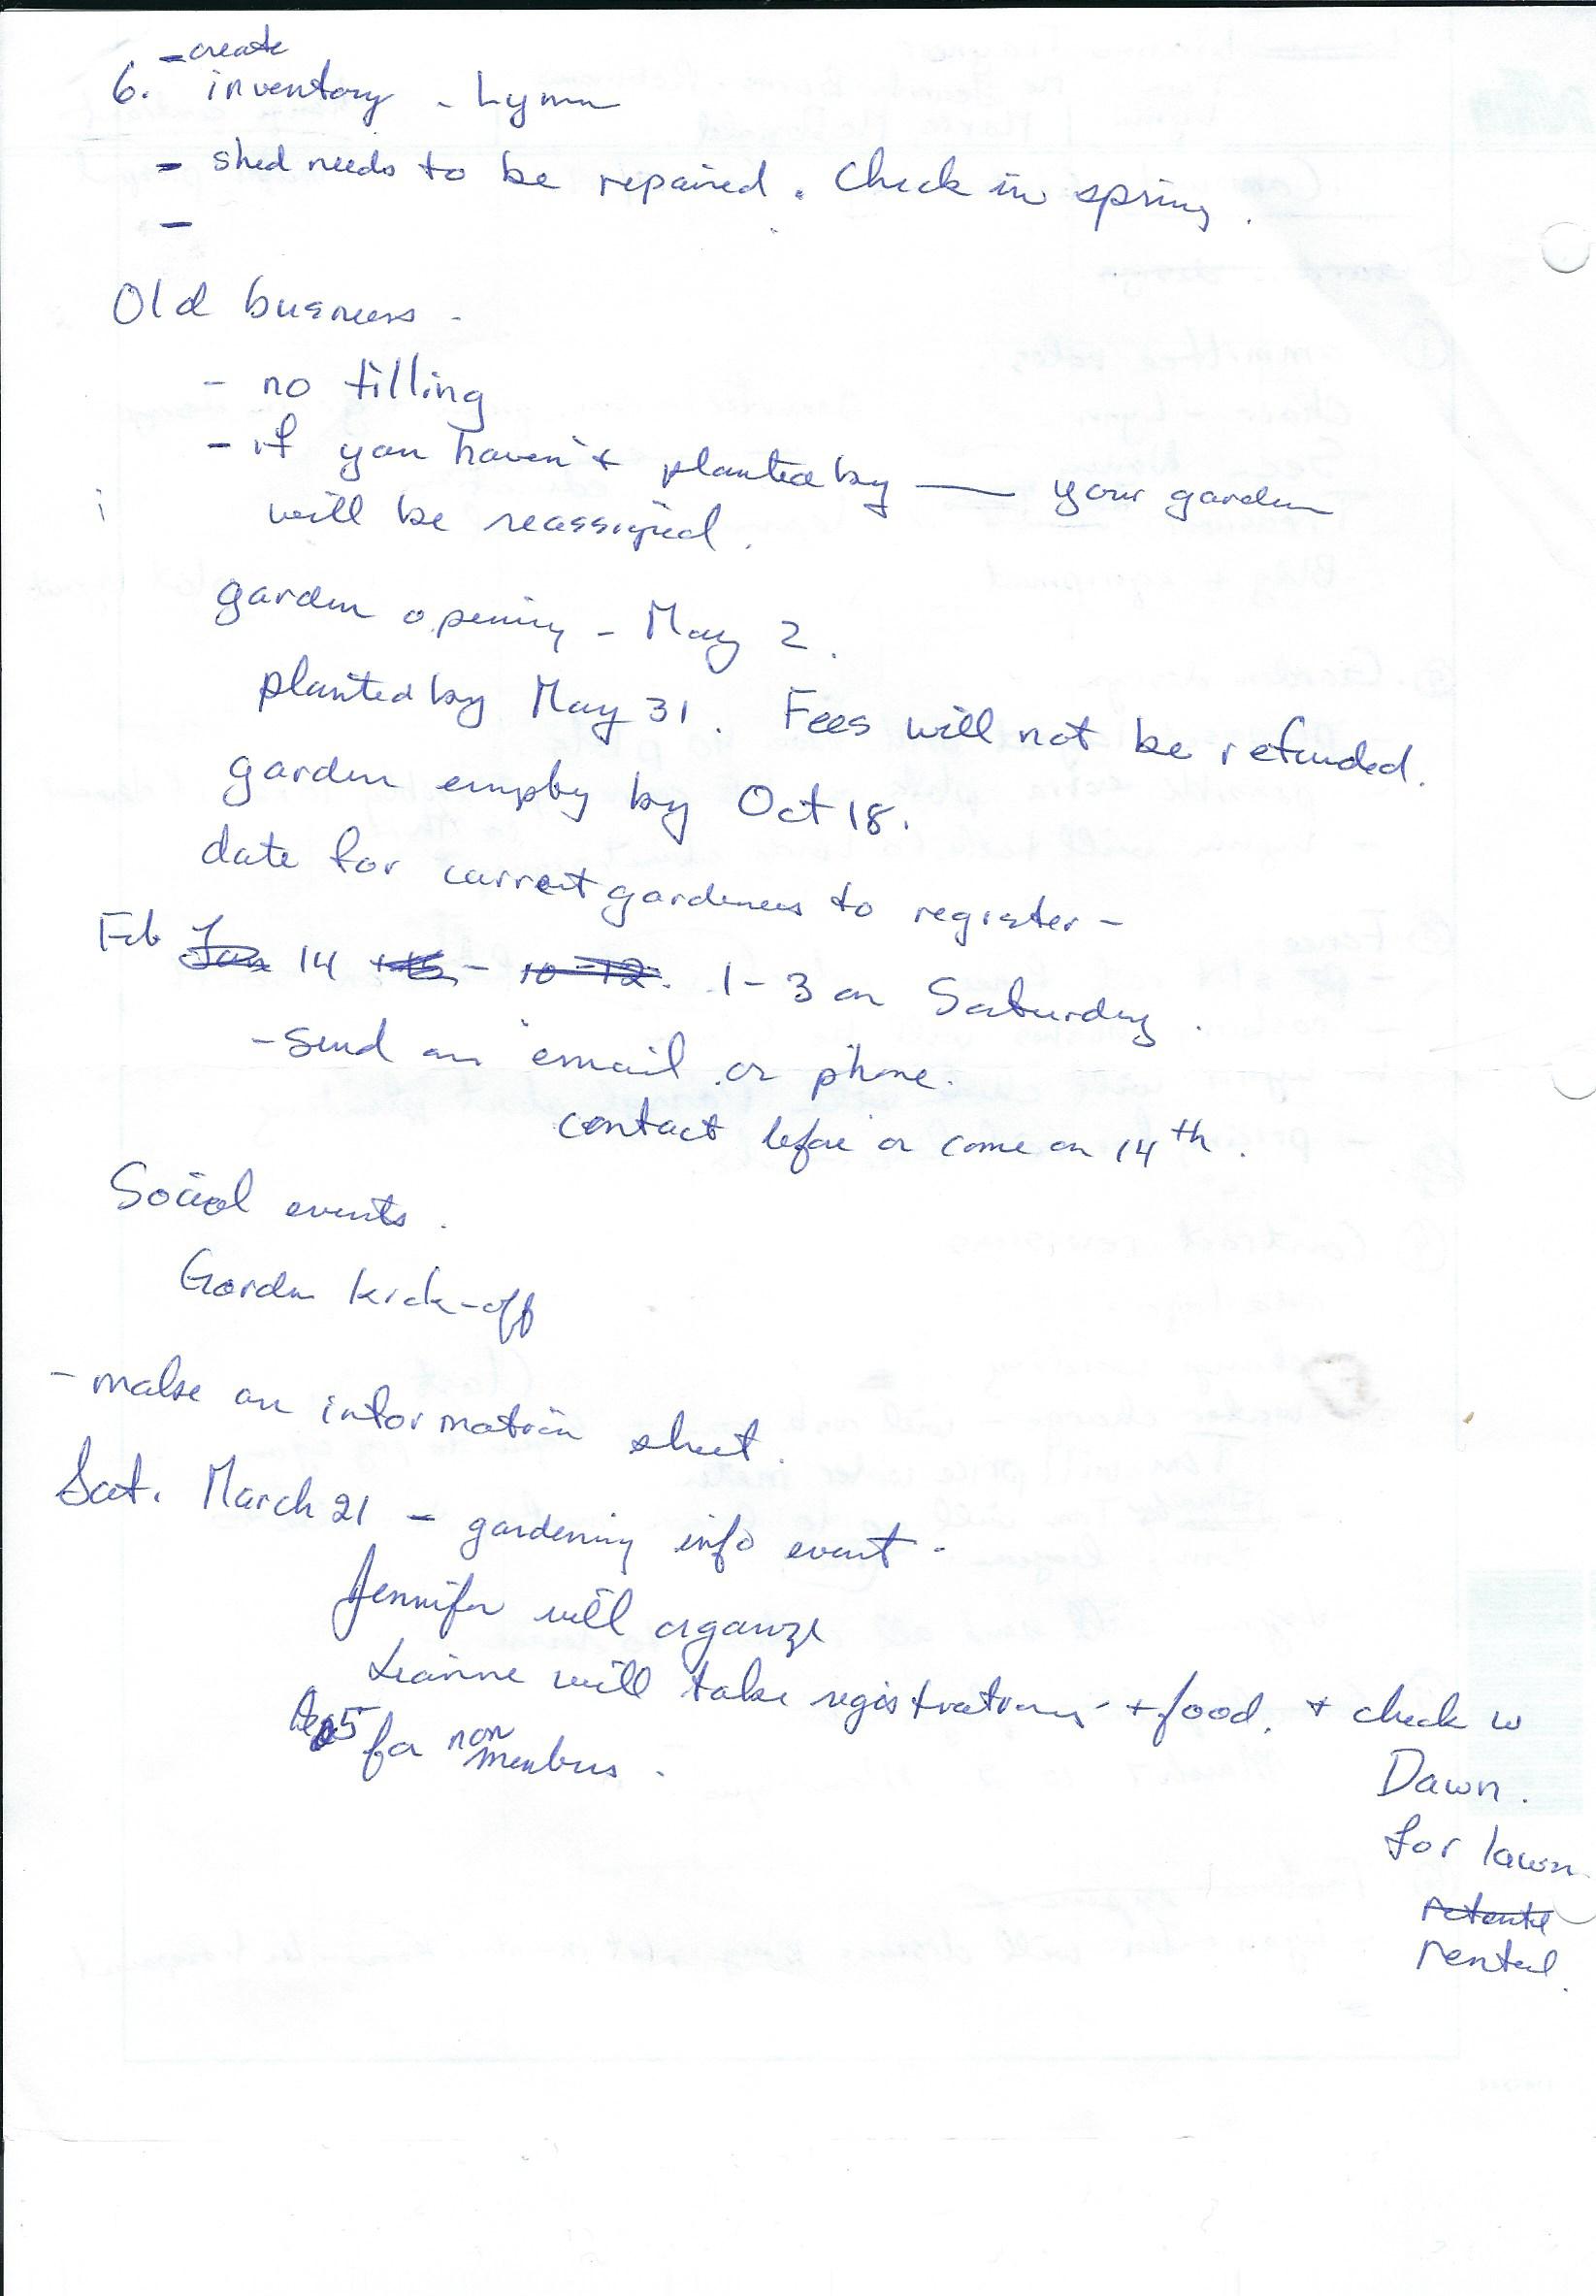 - create
6. inventory - Lynn
- shed needs to be repaired. Check in spring.
-
Old business -
- no tilling
- if you haven't planted by ____ your garden
will be reassigned.
garden opening - May 2.
planted by May 31. Fees will not be refunded.
garden empty by Oct 18.
date for current gardeners to register -
Feb Jan 14 +15 - 10-12. 1-3 on Saturday.
- send an email or phone.
contact before or come on 14th.
Social events.
Garden kick-off
- make an information sheet.
Sat. March 21 - gardening info event -
Jennifer will organize
Leanne will take registrations + food, + check w
Dawn.
for lawn
rental.
5 for non members.